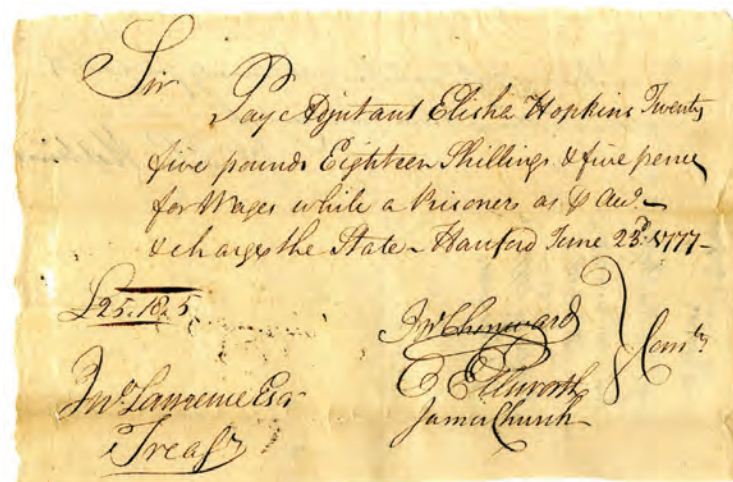 Sir
Pay Adjutant Elisha Hopkins Twenty
five pounds Eighteen Shillings & five pence
for Wages while a Prisoner as ⅌ Acct.
& charge the State - Hartford June 23d: 1777-
£25.18.5
Jno Chenward
O Ellsworth
James Church
Comtee
Jno Lawrence Esqr
Treasr